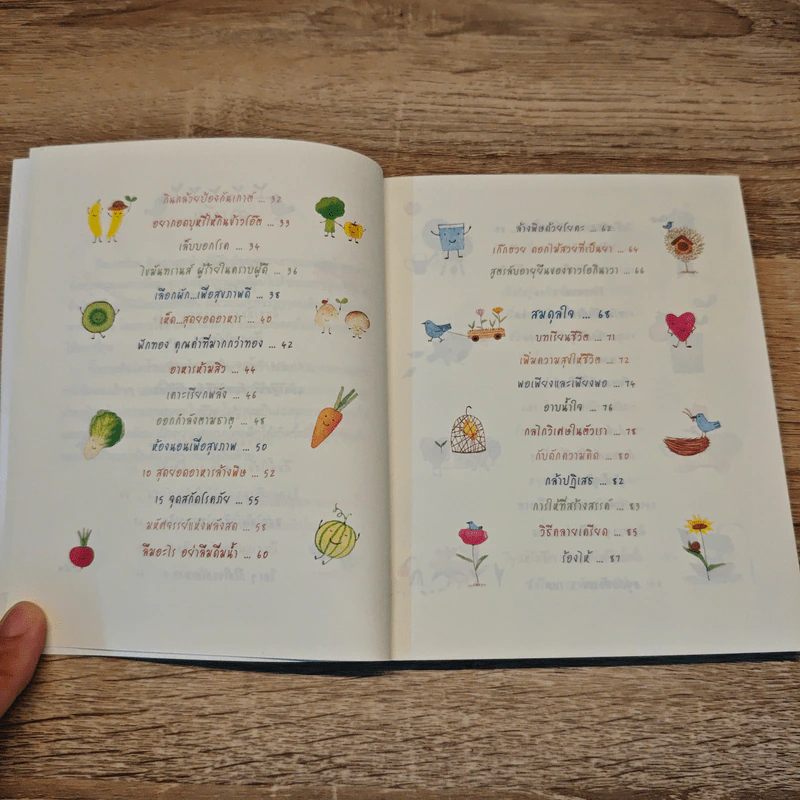 กินกล้วยป้องกันเกาต์ ... 32
อยากอดบุหรี่ให้กินข้าวโอ๊ต ... 33
เล็บบอกโรค ... 34
ไขมันทรานส์ ผู้ร้ายในคราบผู้ดี ... 36
เลือกผัก...เพื่อสุขภาพดี ... 38
เห็ด...สุดยอดอาหาร ... 40
ฟักทอง คุณค่าที่มากกว่าทอง ... 42
อาหารห้ามสิว ... 44
เคาะเรียกพลัง ... 46
ออกกำลังตามธาตุ ... 48
ห้องนอนเพื่อสุขภาพ ... 50
10 สุดยอดอาหารล้างพิษ ... 52
15 จุดสกัดโรคภัย ... 55
มหัศจรรย์แห่งพลังสด ... 58
ลืมอะไร อย่าลืมดื่มน้ำ ... 60
ล้างพิษด้วยโยคะ ... 62
เก๊กฮวย ดอกไม้สวยที่เป็นยา ... 64
สูตรลับอายุยืนของชาวโอกินาวา ... 66
สมดุลใจ ... 68
บทเรียนชีวิต ... 71
เพิ่มความสุขให้ชีวิต ... 72
พอเพียงและเพียงพอ ... 74
อาบน้ำใจ ... 76
กลไกวิเศษในตัวเรา ... 78
กับดักความคิด ... 80
กล้าปฏิเสธ ... 82
การให้ที่สร้างสรรค์ ... 83
วิธีคลายเครียด ... 85
ร้องไห้ ... 87